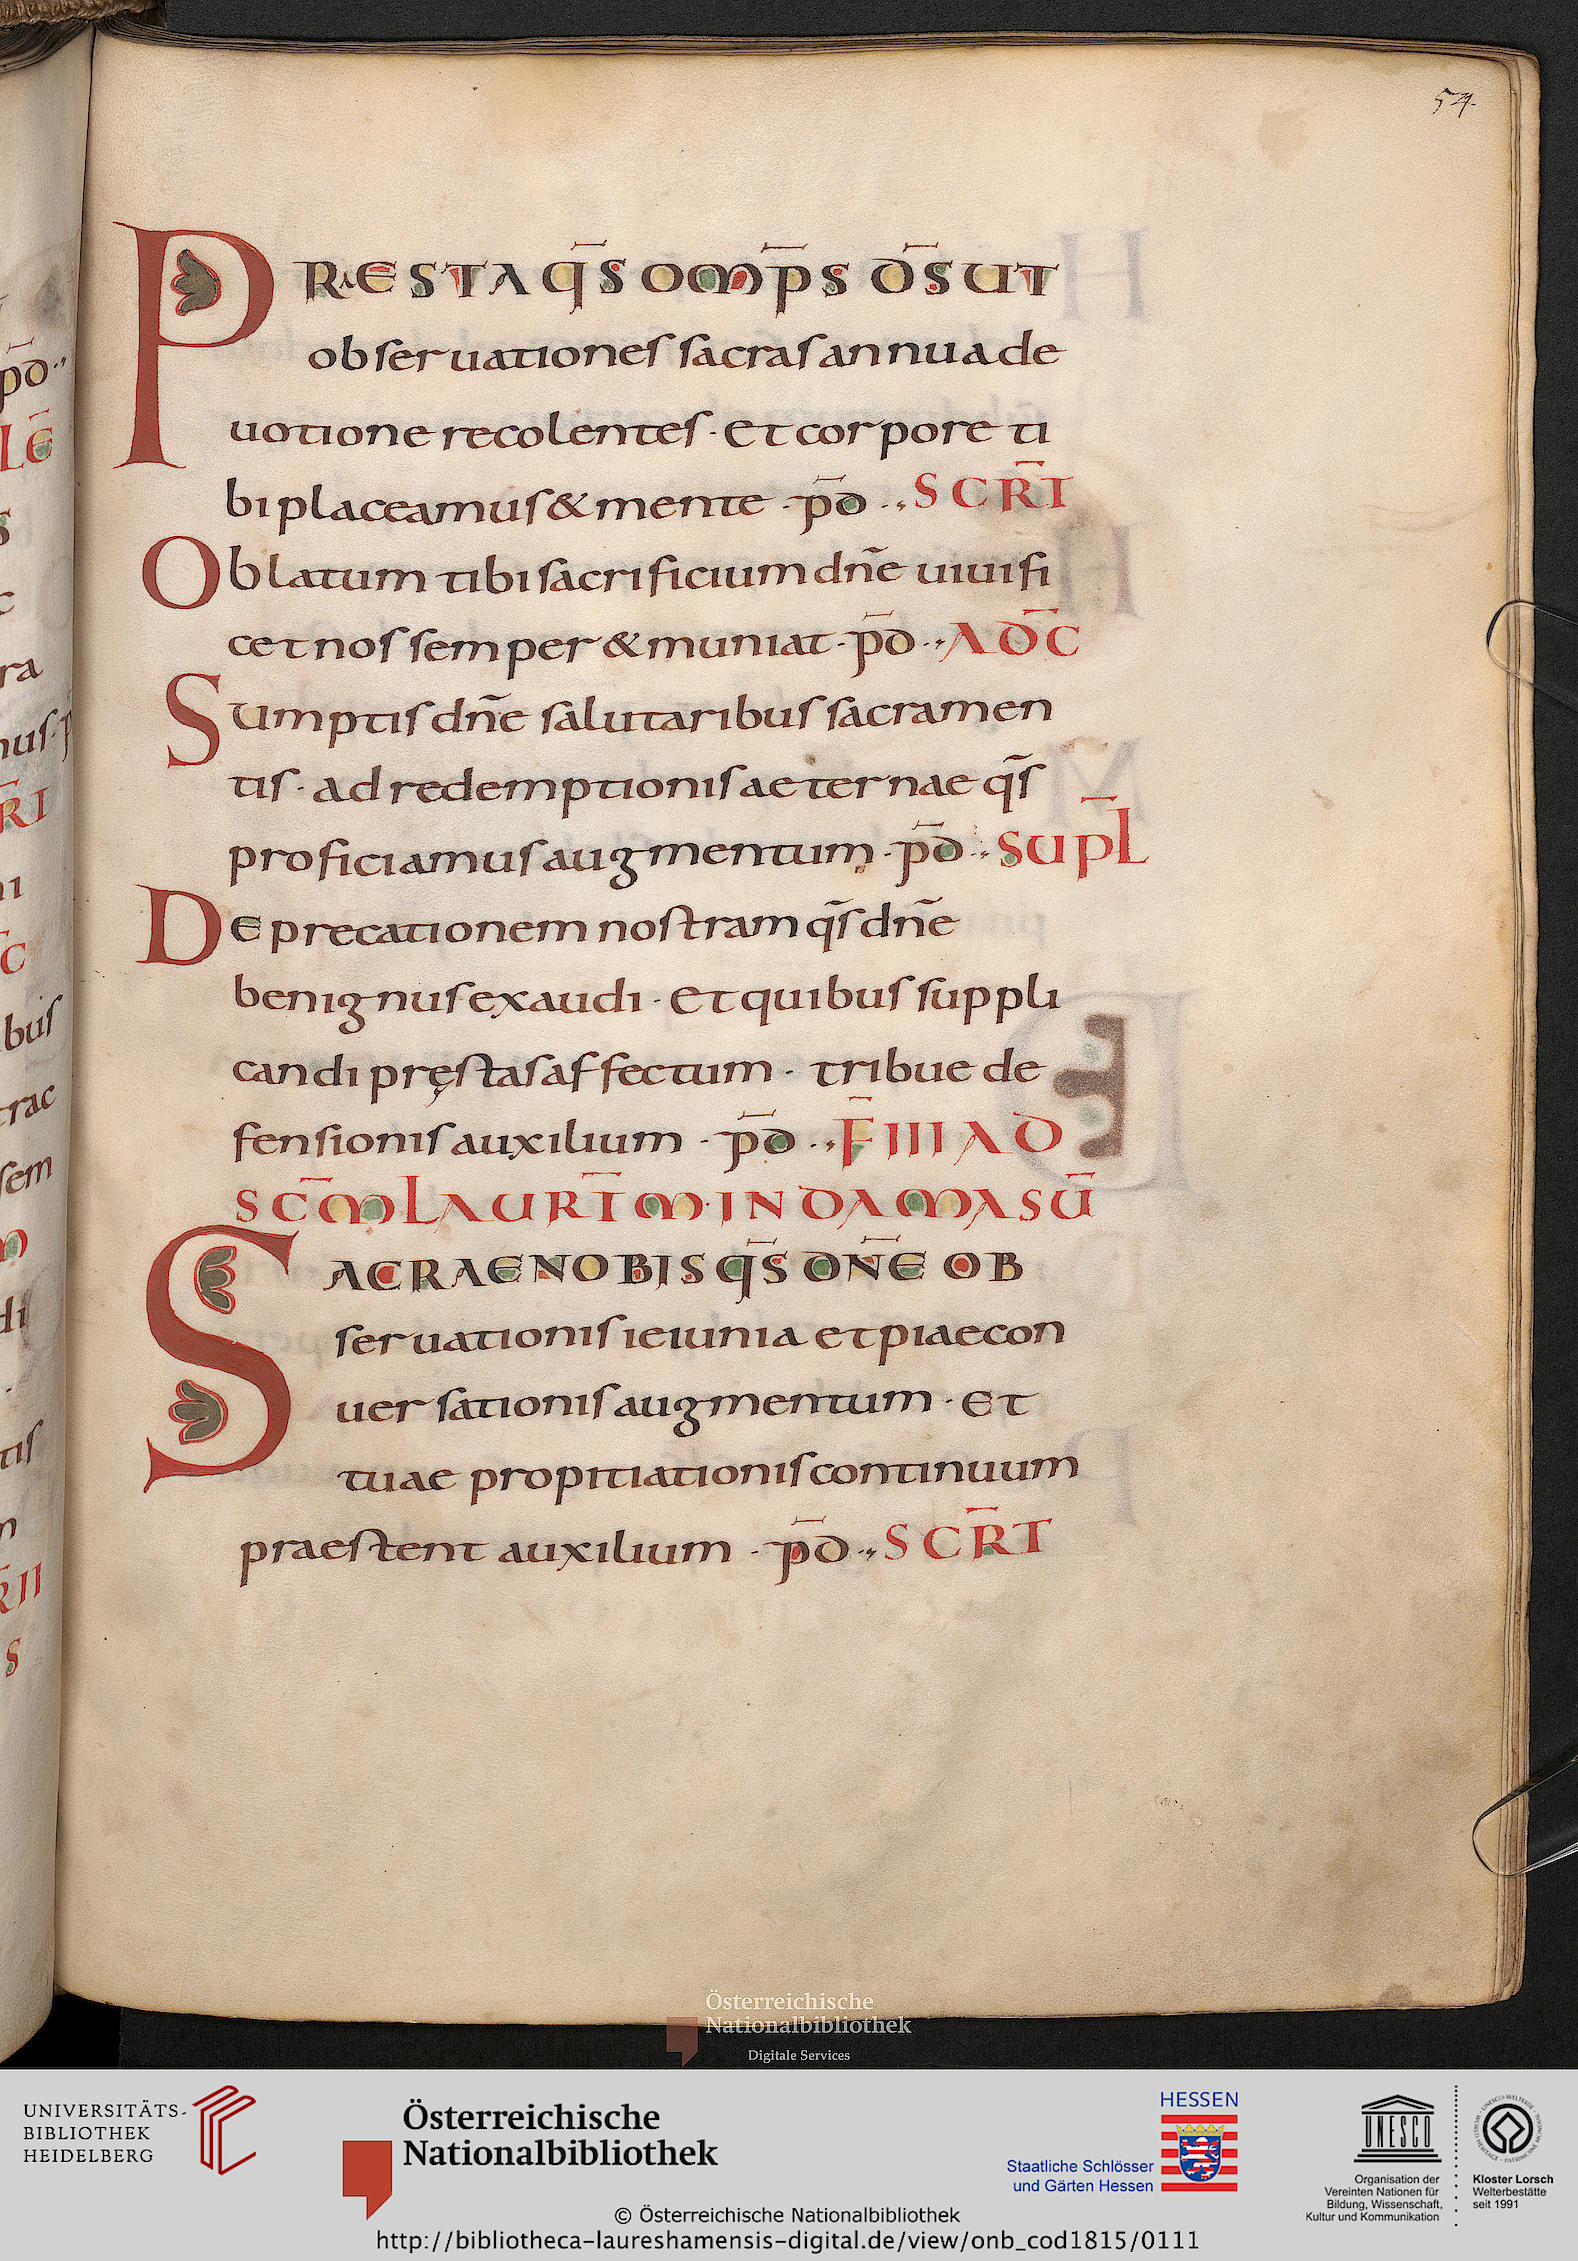 54.
PRESTA QS̄ OMP̄S D̄S UT
obseruationes sacras annua de
uotione recolentes · Et corpore ti
bi placeamus & mente · p̄d ·, SCR̄T
Oblatum tibi sacrificium dn̄e uiuifi
cet nos semper & muniat · p̄d ·, AD̄C
Sumptis dn̄e salutaribus sacramen
tis · ad redemptionis aeternae qs̄
proficiamus augmentum · p̄d ·, SUPL̄
Deprecationem nostram qs̄ dn̄e
benignus exaudi · Et quibus suppli
candi pręstas affectum · tribue de
fensionis auxilium · p̄d ·, F̄ III AD
SC̄M LAURT̄ M · IN DAMASŪ
SACRAE NOBIS QS̄ DN̄E OB
seruationis ieiunia et piae con
uersationis augmentum · Et
tuae propitiationis continuum
praestent auxilium · p̄d ·, SCR̄T
Österreichische
Nationalbibliothek
Digitale Services
UNIVERSITÄTS-
BIBLIOTHEK
HEIDELBERG
Österreichische
Nationalbibliothek
HESSEN
Staatliche Schlösser
und Gärten Hessen
UNESCO
Organisation der
Vereinten Nationen für
Bildung, Wissenschaft,
Kultur und Kommunikation
Kloster Lorsch
Welterbestätte
seit 1991
© Österreichische Nationalbibliothek
http://bibliotheca-laureshamensis-digital.de/view/onb_cod1815/0111